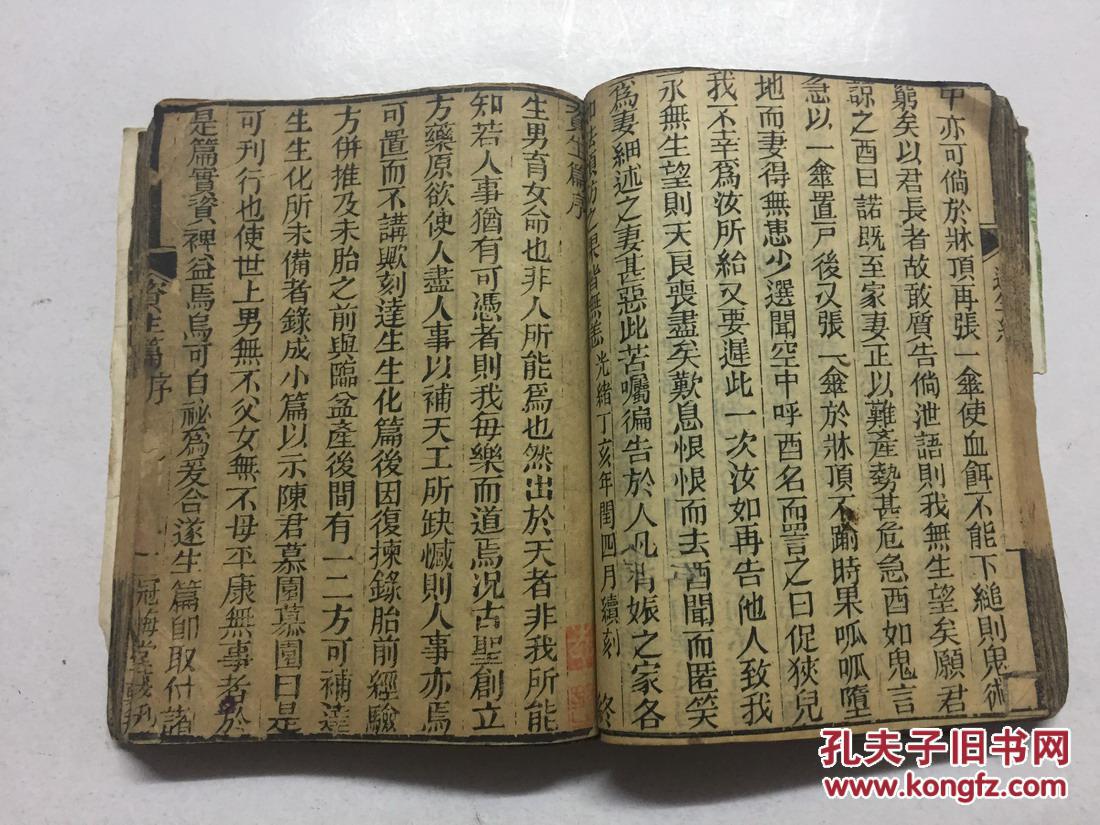 中亦可倘於牀頂再張一傘使血餌不能下縋則鬼術
窮矣以君長者故敢質告倘泄語則我無生望矣願君
諒之酉曰諾既至家妻正以難產勢甚危急酉如鬼言
急以一傘置戸後又張一傘於牀頂不踰時果呱呱墮
地而妻得無恙少選聞空中呼酉名而詈之曰促狹兒
我不幸爲汝所紿又要遲此一次汝如再告他人致我
永無生望則天良喪盡矣歎息恨恨而去酉聞而匿笑
爲妻細述之妻甚惡此苦囑徧告於人凡有娠之家各
如法預防之果皆無恙 光緒丁亥年閏四月續刻 終
資生篇序
生男育女命也非人所能爲也然出於天者非我所能
知若人事猶有可憑者則我毎樂而道焉况古聖創立
方藥原欲使人盡人事以補天工所缺憾則人事亦焉
可置而不講歟刻達生生化篇後因復揀錄胎前經驗
方併推及未胎之前與臨盆產後間有一二方可補達
生生化所未備者錄成小篇以示陳君慕園慕園曰是
可刊行也使世上男無不父女無不母平康無事者於
是篇實資裨益焉烏可自祕爲爰合遂生篇卽取付諸
資生篇 序 一 冠悔堂
孔夫子旧书网
www.kongfz.com